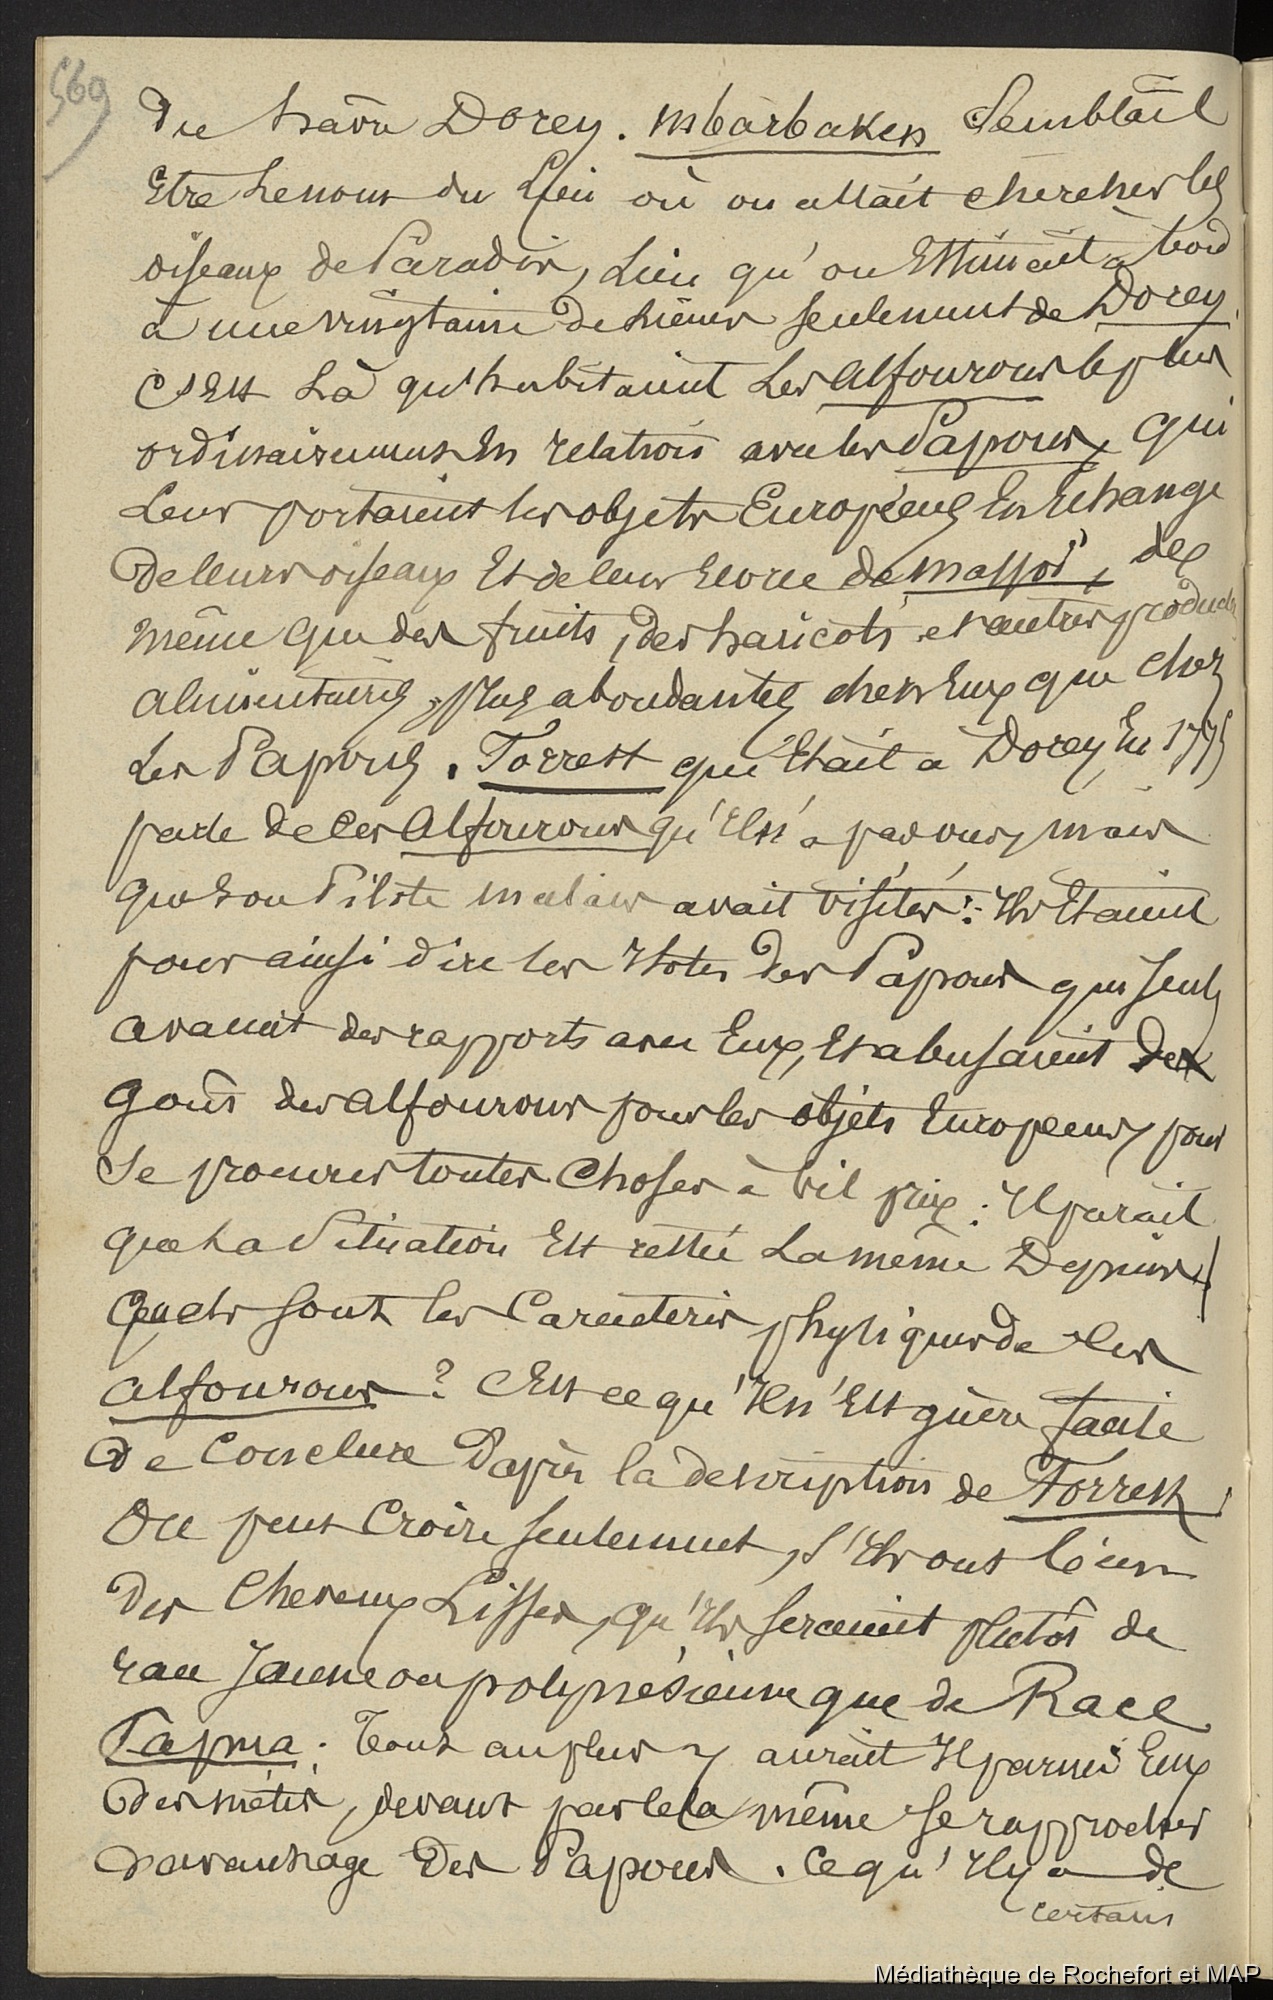 569
du havre Dorey. mbarbaken Semblait
Etre Le nom du Lieu où on allait chercher les
oiseaux de Paradis, Lieu qu'on Estimait à bord
à une vingtaine de Lieues seulement de Dorey.
C'Est Là qu'habitaient Les Alfourous le plus
ordinairement En relation avec les Papous, qui
Leur portaient les objets Européens En Echange
de leurs oiseaux Et de leur Ecorce de massoi, de
même que des fruits, des haricots et autres produits
alimentaires, plus abondantes chez Eux que chez
Les Papous. Forrest qui Etait à Dorey En 1775
parle de Ces Alfourous qu'Il n'a pas vus, mais
que Son Pilote malais avait visités: Ils Etaient
pour ainsi dire les Ilotes des Papous qui seuls
avaient des rapports avec Eux, Et abusaient des
goûts des alfourous pour les objets Européens, pour
Se procurer toutes Choses à vil prix: Il paraît
que La Situation Est restée La même Depuis.
Quels sont les Caractères physiques de Ces
alfourous? C'Est ce qu'Il n'Est guère facile
de Conclure D'après la description de Forrest.
On peut Croire seulement, s'Ils ont bien
des Cheveux Lisses, qu'Ils seraient plutôt de
race Jaune ou polynésienne que de Race
Papua. Tout au plus y aurait Il parmi Eux
des métis, devant par cela même Se rapprocher
Davantage des Papous. Ce qu'Il y a de
certain
Médiathèque de Rochefort et MAP